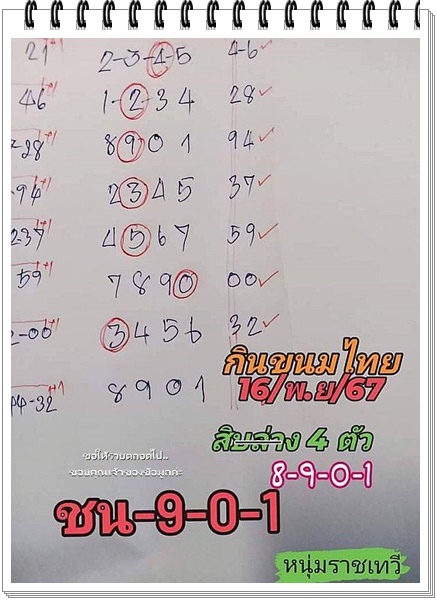 21 +1 2-3-4-5 4-6
46 +1 1-2-3 4 28
-28 +1 8 9 0 1 94
-94 +1 2 3 4 5 37
237 +1 4 5 6 7 59
59 +1 7 8 9 0 00
2-00 +1 3 4 5 6 32
-32 +1 8 9 0 1
กินขนมไทย
16/พ.ย/67
สิบล่าง 4 ตัว
8-9-0-1
ขอให้รวยตลอดไป..
ขอบคุณเจ้าของข้อมูลค่ะ
ชน-9-0-1
หนุ่มราชเทวี